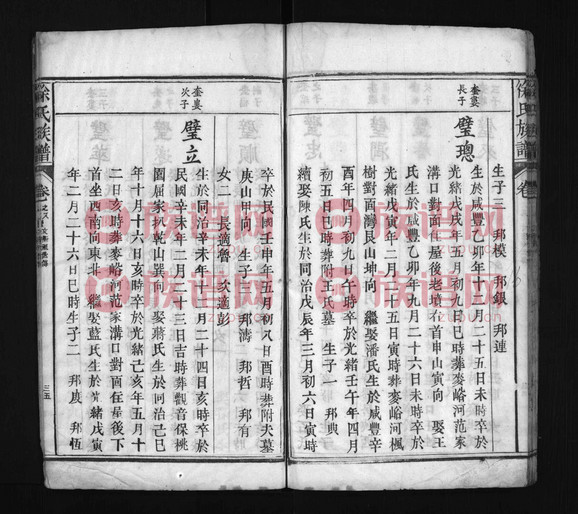 徐氏族譜
卷
生子三 邦模 邦銀 邦連
奎裏長子
璧璁
生於咸豐乙卯年十二月二十五日未時卒於
光緒戊戌年五月初九日巳時葬麥峪河范家
溝口對面屋後老墳右首申山寅向 娶王
氏生於咸豐乙卯年九月二十六日亥時卒於
光緒庚寅年二月十五日寅時葬麥峪河楓
樹對面灣艮山坤向 繼娶潘氏生於咸豐辛
酉年四月初九日午時卒於光緒壬午年四月
初五日巳時葬附王氏墓 生子一 邦興
續娶陳氏生於同治戊辰年三月初六日寅時
卒於民國壬申年五月初八日酉時葬附夫墓
庚山甲向 生子 邦濤 邦哲 邦有
女二 長適詹 次適彭
奎裏次子
璧立
生於同治辛未年十二月二十四日亥時卒於
民國辛未年二月二十三日吉時葬觀音保桃
園屈家扒乾山巽向 娶蔣氏生於同治己巳
年十月十六日亥時卒於光緒己亥年五月十
二日亥時葬麥峪河范家溝口對面莊屋後下
首坐西南向東北 繼娶藍氏生於光緒戊寅
年二月二十六日巳時生子二 邦度 邦恆
徐氏族譜
卷之
三五
族谱网
zupu.cn